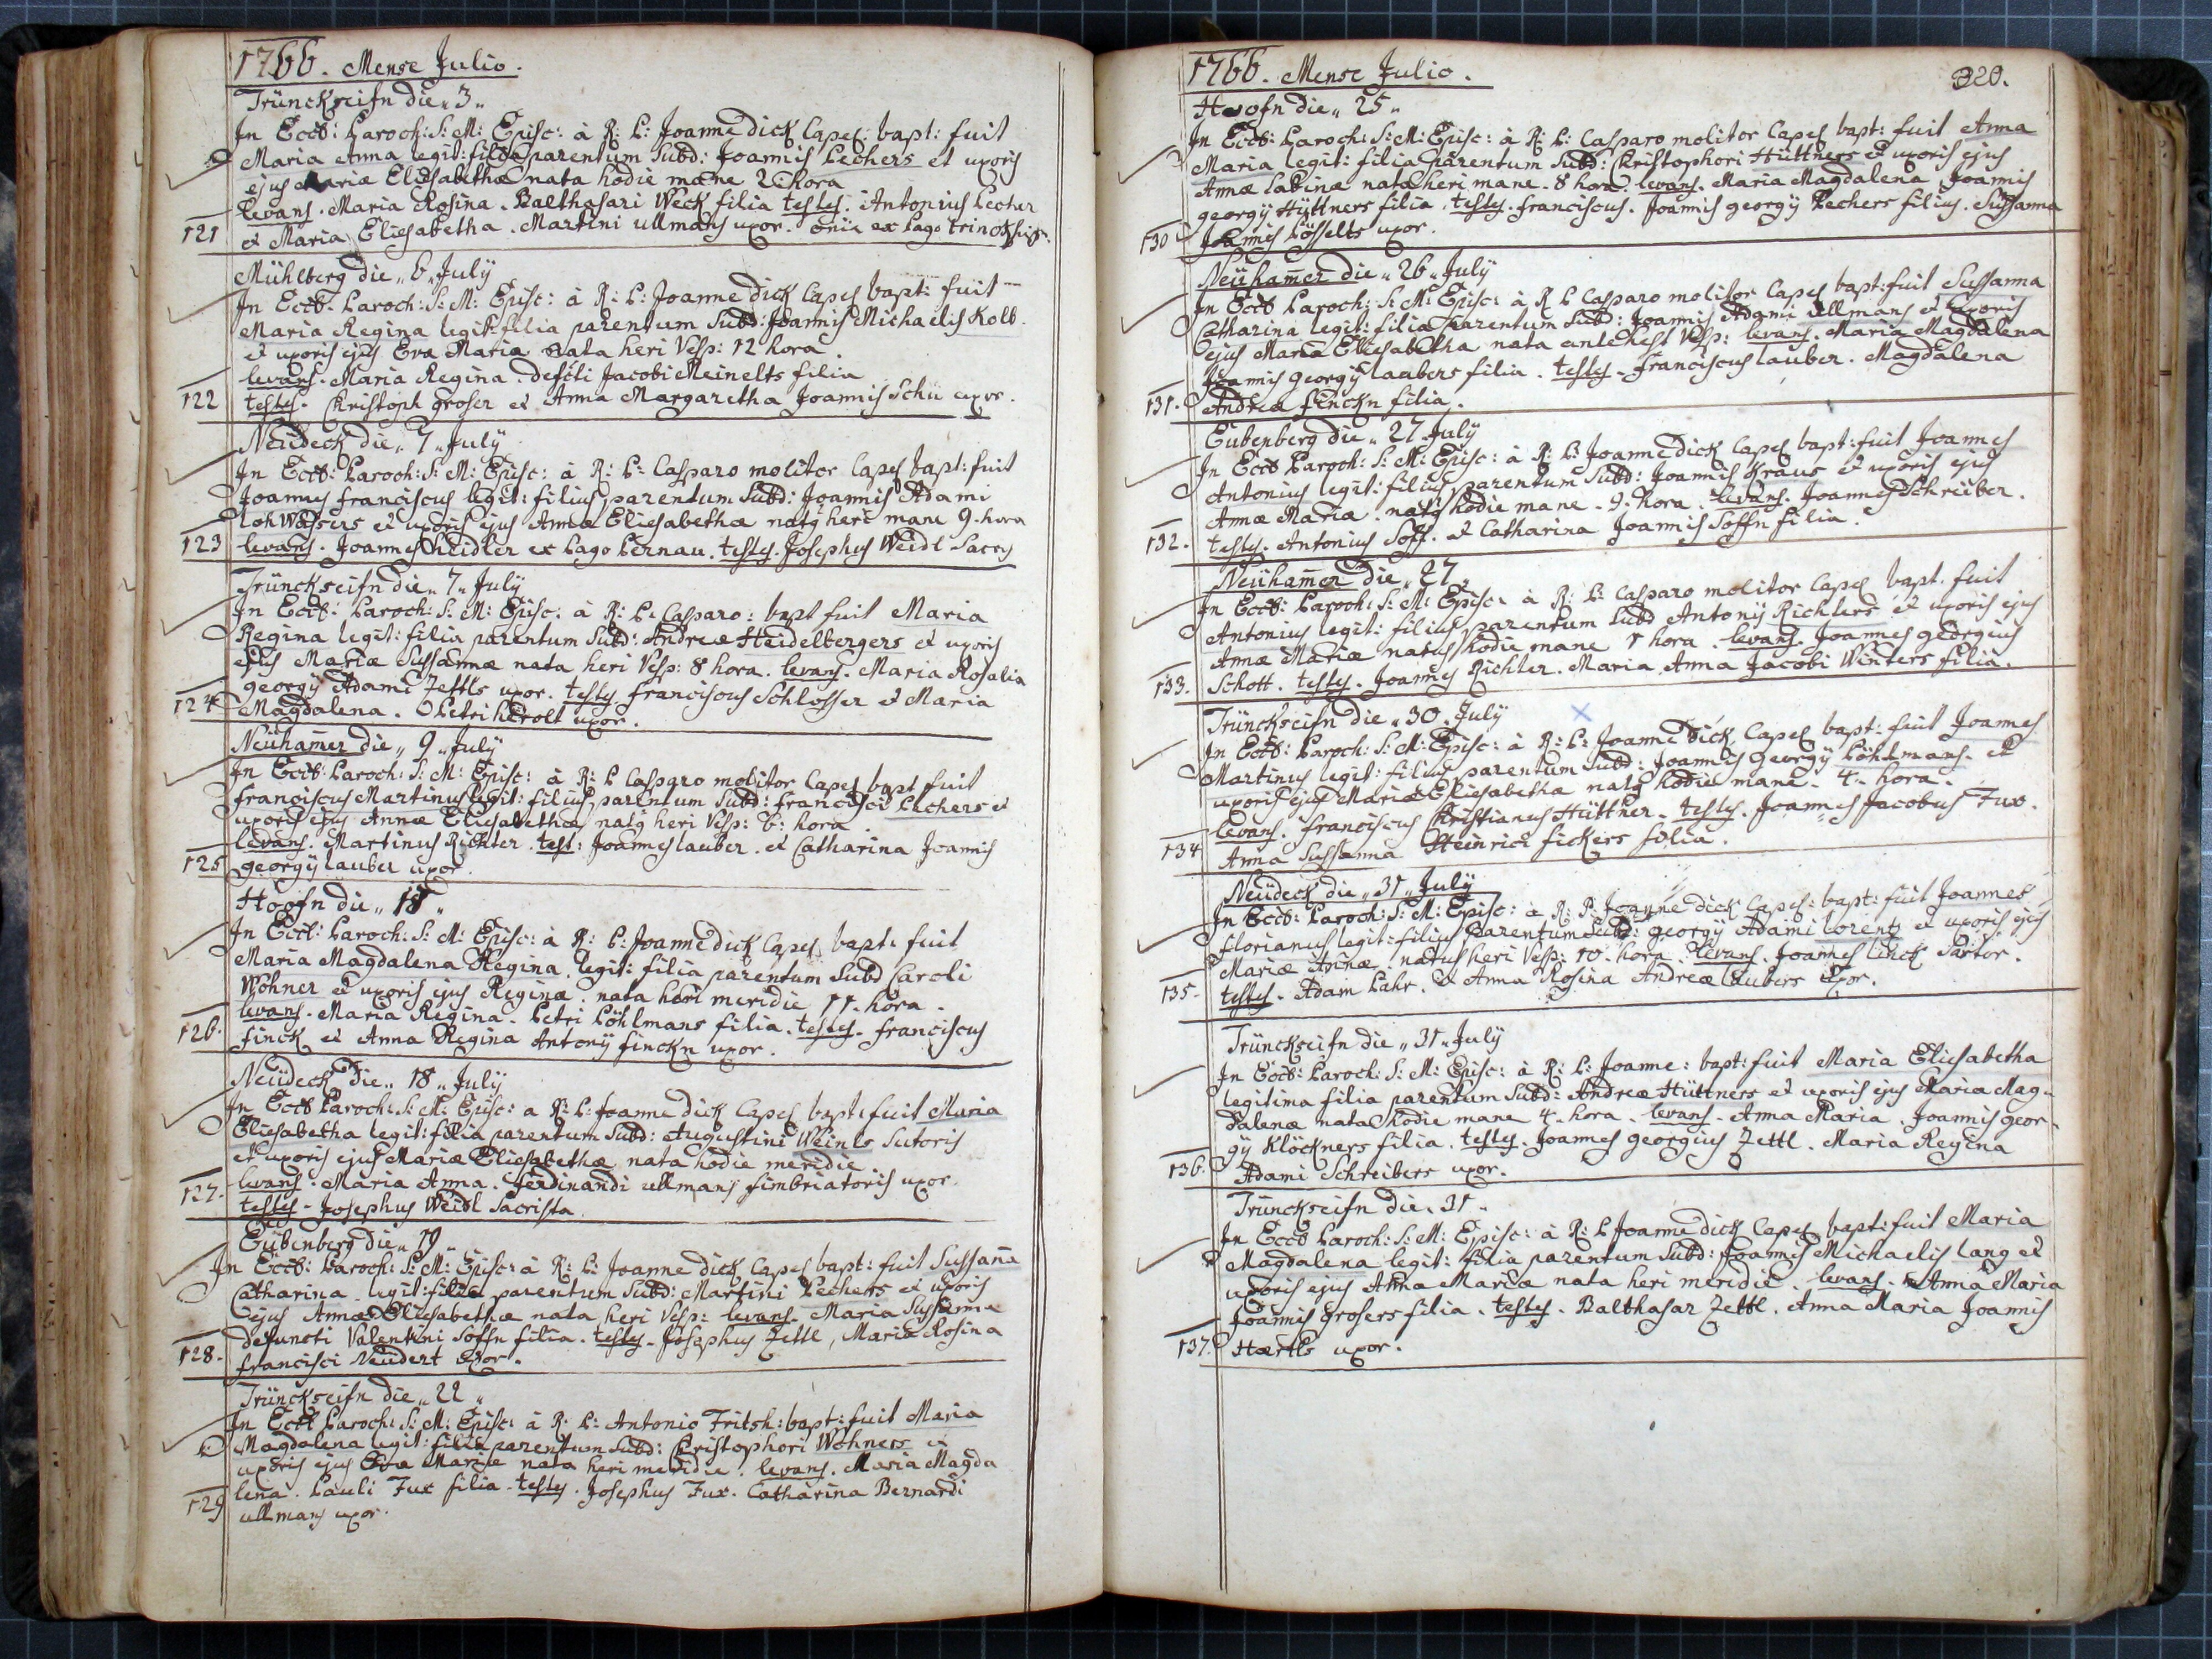 1766. Mense Julio.
Trünckseifn die „3„
In Eccl: Paroch: S: M: Episc: à R: P: Joanne dick Capel: bapt: fuit
Maria Anna legit: filia parentum Subd: Joannis Pechers et uxoris
ejus Mariæ Eliesabethæ nata hodie mane 2 hora
levans. Maria Rosina. Balthasari Weck filia testes. Antonius Pecher
121 et Maria Eliesabetha. Martini ullmans uxor. ex Pago
Mühlberg die „6„ July
In Eccl: Paroch: S: M: Episc: à R: P: Joanne dick Capel bapt: fuit
Maria Regina legit: filia parentum Subd: Joannis Michaelis Kolb.
et uxoris ejus Eva Maria nata heri Vesp: 12 hora.
levans. Maria Regina. defcti Jacobi Meinelts filia
122 testes. Christoph groser et Anna Margaretha Joannis Schü uxor.
Neüdeck die „7„ July
In Eccl: Paroch: S: M: Episc: à R: P: Casparo molitor Capel bapt: fuit
Joannes franciscus legit: filius parentum Subd: Joannis Adami
lohWassers et uxoris ejus Annæ Eliesabethæ natg heri mane 9. hora
123 levans. Joannes Heidler ex Pago Pernau. testes. Josephus Weidl Sacry
Trünckseifn die „7„ July
In Eccl: Paroch: S: M: Episc: à R: P: Casparo: bapt fuit Maria
Regina legit: filia parentum Subd: Andreæ Heidelbergers et uxoris
ejus Mariæ Sussannæ nata heri Vesp: 8 hora. levans. Maria Rosalia
georgÿ Adami Zettls uxor. testes franciscus Schlosser et Maria
124 Magdalena. Petri herolt uxor.
Neühamer die „9„ July
In Eccl: Paroch: S: M: Episc: à R: P Casparo molitor Capel bapt fuit
franciscus Martinus legit: filius parentum Subd: francisci Pechers et
uxoris ejus Annæ Eliesabethæ natg heri Vesp: 6: hora
levans. Martinus Richter. test: Joannes lauber. et Catharina Joannis
125 georgÿ lauber uxor.
Hoofn die „18„
In Eccl: Paroch: S: M: Episc: à R: P: Joanne dick Capel bapt: fuit
Maria Magdalena Regina. legit: filia parentum Subd Caroli
Wohner et uxoris ejus Reginæ. nata heri meridie 11. hora.
levans. Maria Regina. Petri Pöhlmans filia. testes. franciscus
126. finck et Anna Regina Antonÿ finckn uxor.
Neüdeck die „18„ July
In Eccl Paroch: S: M: Episc: a R: P: Joanne dick Capel bapt: fuit Maria
Eliesabetha legit: filia parentum Subd: Augustini Weinls Sutoris
et uxoris ejus Mariæ Eliesabethæ nata hodie meridie
levans. Maria Anna. ferdinandi ullmans fimbriatoris uxor.
127. testes. Josephus Weidl Sacrista
Eübenberg die „19„
In Eccl: Paroch: S: M: Episc: à R: P: Joanne dick Capel bapt: fuit Sussaña
Catharina. legit: filia parentum Subd: Martini Pechers et uxoris
ejus Annæ Eliesabethæ nata heri Vesp: levans. Maria Sussanna
defuncti Valentini Soffn filia. testes. Josephus Zettl, Maria Rosina
128. francisci Neudert uxor.
Trünckseifn die „22„
In Eccl Paroch: S: M: Episc: à R: P: Antonio Fritsh: bapt: fuit Maria
Magdalena legit: filia parentum Subd: Christophori Wohners et
uxoris ejus Eva Mariæ nata heri meridie. levans. Maria Magda
lena. Pauli Fux filia. testes. Josephus Fux. Catharina Bernardi
129 ullmans uxor.
1766. Mense Julio. 320.
Hoofn die „25„
In Eccl: Paroch: S: M: Episc: à R: P: Casparo molitor Capel bapt: fuit Anna
Maria legit: filia parentum Subd: Christophori Hüttners et uxoris ejus
Annæ Sabinæ nata heri mane. 8 hora. levans. Maria Magdalena Joannis
georgÿ Hüttners filia. testes. franciscus. Joannis georgÿ Pechers filius. Sussanna
130 Joannis Lösselts uxor.
Neühamer die „26„ July
In Eccl Paroch: S: M: Episc: à R P Casparo molitor Capel bapt: fuit Sussanna
Catharina legit: filia parentum Subd: Joannis Adami ullmans et uxoris
ejus Maria Eliesabetha nata Vesp: levans. Maria Magdalena
Joannis georgÿ laubers filia. testes. franciscus lauber. Magdalena
131. Andreæ finckn filia.
Eübenberg die „27 July
In Eccl Paroch: S: M: Episc: à R: P: Joanne dick Capel bapt: fuit Joannes
Antonius legit: filius parentum Subd: Joannis Kraus et uxoris ejus
Annæ Mariæ. natg hodie mane. 9. hora. levans. Joannes Schreiber.
132. testes. Antonius Soff. et Catharina Joannis Soffn filia.
Neühamer die „27„
In Eccl: Paroch: S: M: Episc: à R: P: Casparo molitor Capel bapt. fuit
Antonius legit: filius parentum Subd Antonÿ Richters et uxoris ejus
Annæ Mariæ natus hodie mane 1 hora. levans. Joannes georgius
133. Schott. testes. Joannes Richter. Maria Anna Jacobi Winters filia.
Trünckseifn die „30„ July
In Eccl: Paroch: S: M: Episc: à R: P: Joanne dick Capel bapt: fuit Joannes
Martinus legit: filius parentum Subd: Joannis georgÿ Pöhlmans. et
uxoris ejus Mariæ Eliesabetha natg hodie mane. 4. hora.
levans. franciscus Christianus Hüttner. testes. Joannes Jacobus Fux.
134 Anna Sussanna Heinrici fickers filia.
Neüdeck die „31„ July
In Eccl: Paroch: S: M: Episc: à R: P: Joanne dick Capel: bapt: fuit Joannes
florianus legit: filius parentum Subd: georgÿ Adami lorentz et uxoris ejus
Mariæ Annæ. natus heri Vesp: 10. hora. levans. Joannes linck Sartor.
135. testes. Adam Lahr. et Anna Rosina Andreæ laubers uxor.
Trünckseifn die „31„ July
In Eccl: Paroch: S: M: Episc: à R: P: Joanne: bapt: fuit Maria Eliesabetha
legitima filia parentum Subd: Andreæ Hüttners et uxoris ejus Maria Mag„
dalenæ nata hodie mane 4. hora. levans. Anna Maria. Joannis geor„
gÿ Klöckners filia. testes. Joannes georgius Zettl. Maria Regina
136. Adami Schreibers uxor.
Trünckseifn die„ 31„
In Eccl Paroch: S: M: Episc: à R: P Joanne dick Capel bapt: fuit Maria
Magdalena legit: filia parentum Subd: Joannis Michaelis lang et
uxoris ejus Anna Mariæ nata heri meridie. levans. Anna Maria
Joannis grosers filia. testes. Balthasar Zettl. Anna Maria Joannis
137. Hærtls uxor.